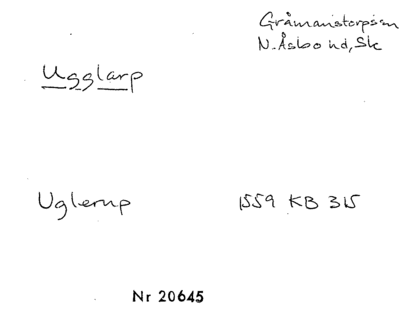 Gråmanstorps sn
N. Åsbo hd, Sk
Ugglarp
Uglerup 1559 KB 315
Nr 20645